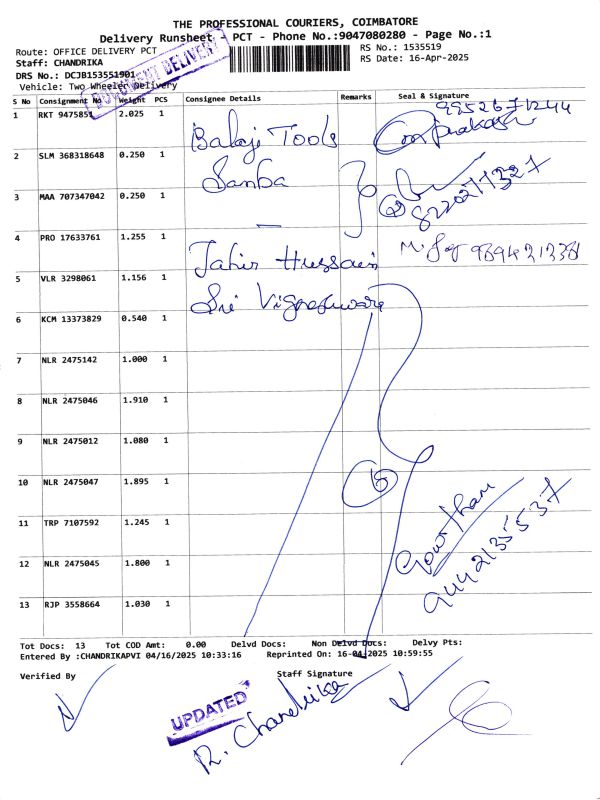 THE PROFESSIONAL COURIERS, COIMBATORE
Delivery Runsheet - PCT - Phone No.:9047080280 - Page No.:1
Route: OFFICE DELIVERY PCT
RS No.: 1535519
Staff: CHANDRIKA
RS Date: 16-Apr-2025
DRS No.: DCJB153551901
DOCUMENT DELIVERY
Vehicle: Two Wheeler Delivery
S No Consignment No Weight PCS Consignee Details Remarks Seal & Signature
1 RKT 9475851 2.025 1 Balaji Tools
2 SLM 368318648 0.250 1 Samba
3 MAA 707347042 0.250 1
8220277327
4 PRO 17633761 1.255 1 Tahir Hussain
5 VLR 3298061 1.156 1 Sri Vigneshwara
6 KCM 13373829 0.540 1
7 NLR 2475142 1.000 1
8 NLR 2475046 1.910 1
9 NLR 2475012 1.080 1
10 NLR 2475047 1.895 1
11 TRP 7107592 1.245 1
Gowtham
9442135537
12 NLR 2475045 1.800 1
13 RJP 3558664 1.030 1
Tot Docs: 13 Tot COD Amt: 0.00 Delvd Docs: Non Delvd Docs: Delvy Pts:
Entered By :CHANDRIKAPVI 04/16/2025 10:33:16 Reprinted On: 16-04-2025 10:59:55
Verified By Staff Signature
UPDATED
R. Chandrika